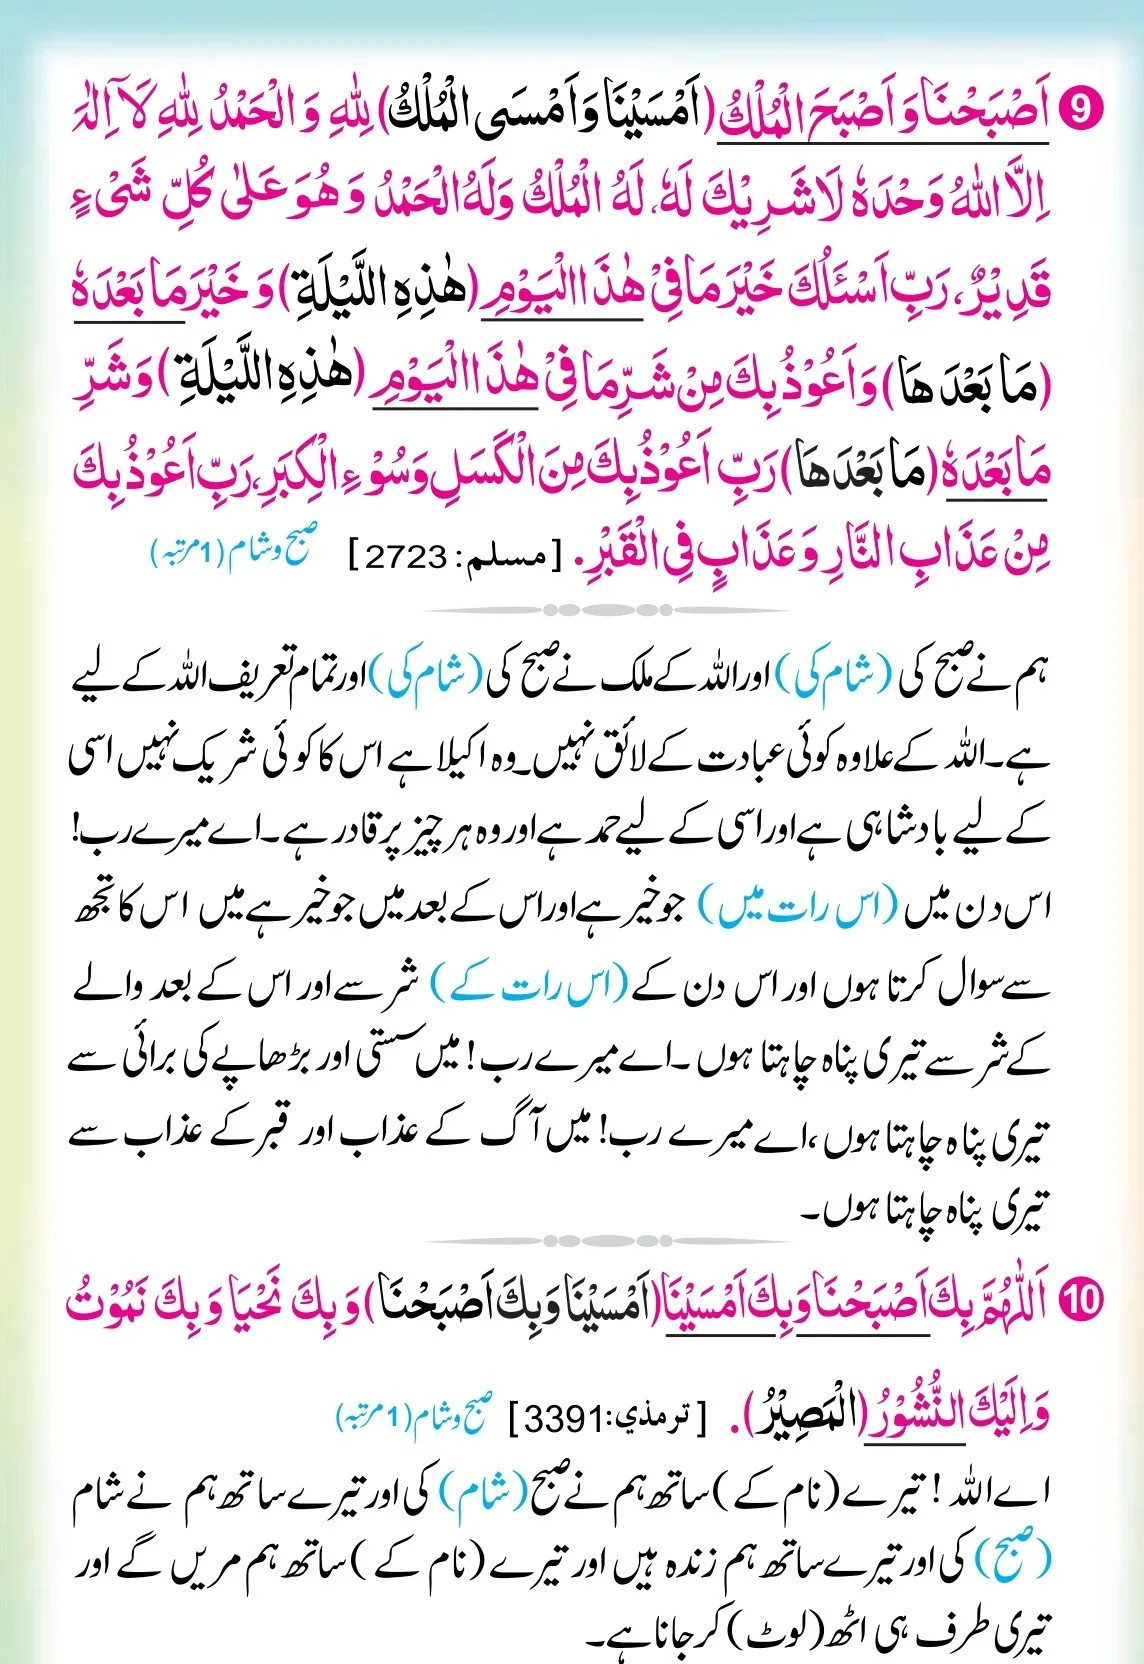 9 اَصْبَحْنَا وَ اَصْبَحَ الْمُلْكُ (اَمْسَيْنَا وَ اَمْسَى الْمُلْكُ) لِلّٰهِ وَ الْحَمْدُ لِلّٰهِ لَآ اِلٰهَ
اِلَّا اللّٰهُ وَحْدَهٗ لَا شَرِيْكَ لَهٗ، لَهُ الْمُلْكُ وَلَهُ الْحَمْدُ وَ هُوَ عَلٰى كُلِّ شَىْءٍ
قَدِيْرٌ، رَبِّ اَسْئَلُكَ خَيْرَ مَا فِىْ هٰذَا الْيَوْمِ (هٰذِهِ اللَّيْلَةِ) وَ خَيْرَ مَا بَعْدَهٗ
(مَا بَعْدَهَا) وَ اَعُوْذُ بِكَ مِنْ شَرِّ مَا فِىْ هٰذَا الْيَوْمِ (هٰذِهِ اللَّيْلَةِ) وَ شَرِّ
مَا بَعْدَهٗ (مَا بَعْدَهَا) رَبِّ اَعُوْذُ بِكَ مِنَ الْكَسَلِ وَسُوْءِ الْكِبَرِ، رَبِّ اَعُوْذُ بِكَ
مِنْ عَذَابِ النَّارِ وَ عَذَابٍ فِى الْقَبْرِ. [مسلم: 2723] صبح و شام (1 مرتبہ)
ہم نے صبح کی (شام کی) اور اللہ کے ملک نے صبح کی (شام کی) اور تمام تعریف اللہ کے لیے
ہے۔ اللہ کے علاوہ کوئی عبادت کے لائق نہیں۔ وہ اکیلا ہے اس کا کوئی شریک نہیں اسی
کے لیے بادشاہی ہے اور اسی کے لیے حمد ہے اور وہ ہر چیز پر قادر ہے۔ اے میرے رب!
اس دن میں (اس رات میں) جو خیر ہے اور اس کے بعد میں جو خیر ہے میں اس کا تجھ
سے سوال کرتا ہوں اور اس دن کے (اس رات کے) شر سے اور اس کے بعد والے
کے شر سے تیری پناہ چاہتا ہوں۔ اے میرے رب! میں سستی اور بڑھاپے کی برائی سے
تیری پناہ چاہتا ہوں، اے میرے رب! میں آگ کے عذاب اور قبر کے عذاب سے
تیری پناہ چاہتا ہوں۔
10 اَللّٰهُمَّ بِكَ اَصْبَحْنَا وَبِكَ اَمْسَيْنَا (اَمْسَيْنَا وَبِكَ اَصْبَحْنَا) وَ بِكَ نَحْيَا وَ بِكَ نَمُوْتُ
وَ اِلَيْكَ النُّشُوْرُ (الْمَصِيْرُ). [ترمذي: 3391] صبح و شام (1 مرتبہ)
اے اللہ! تیرے (نام کے) ساتھ ہم نے صبح (شام) کی اور تیرے ساتھ ہم نے شام
(صبح) کی اور تیرے ساتھ ہم زندہ ہیں اور تیرے (نام کے) ساتھ ہم مریں گے اور
تیری طرف ہی اٹھ (لوٹ) کر جانا ہے۔